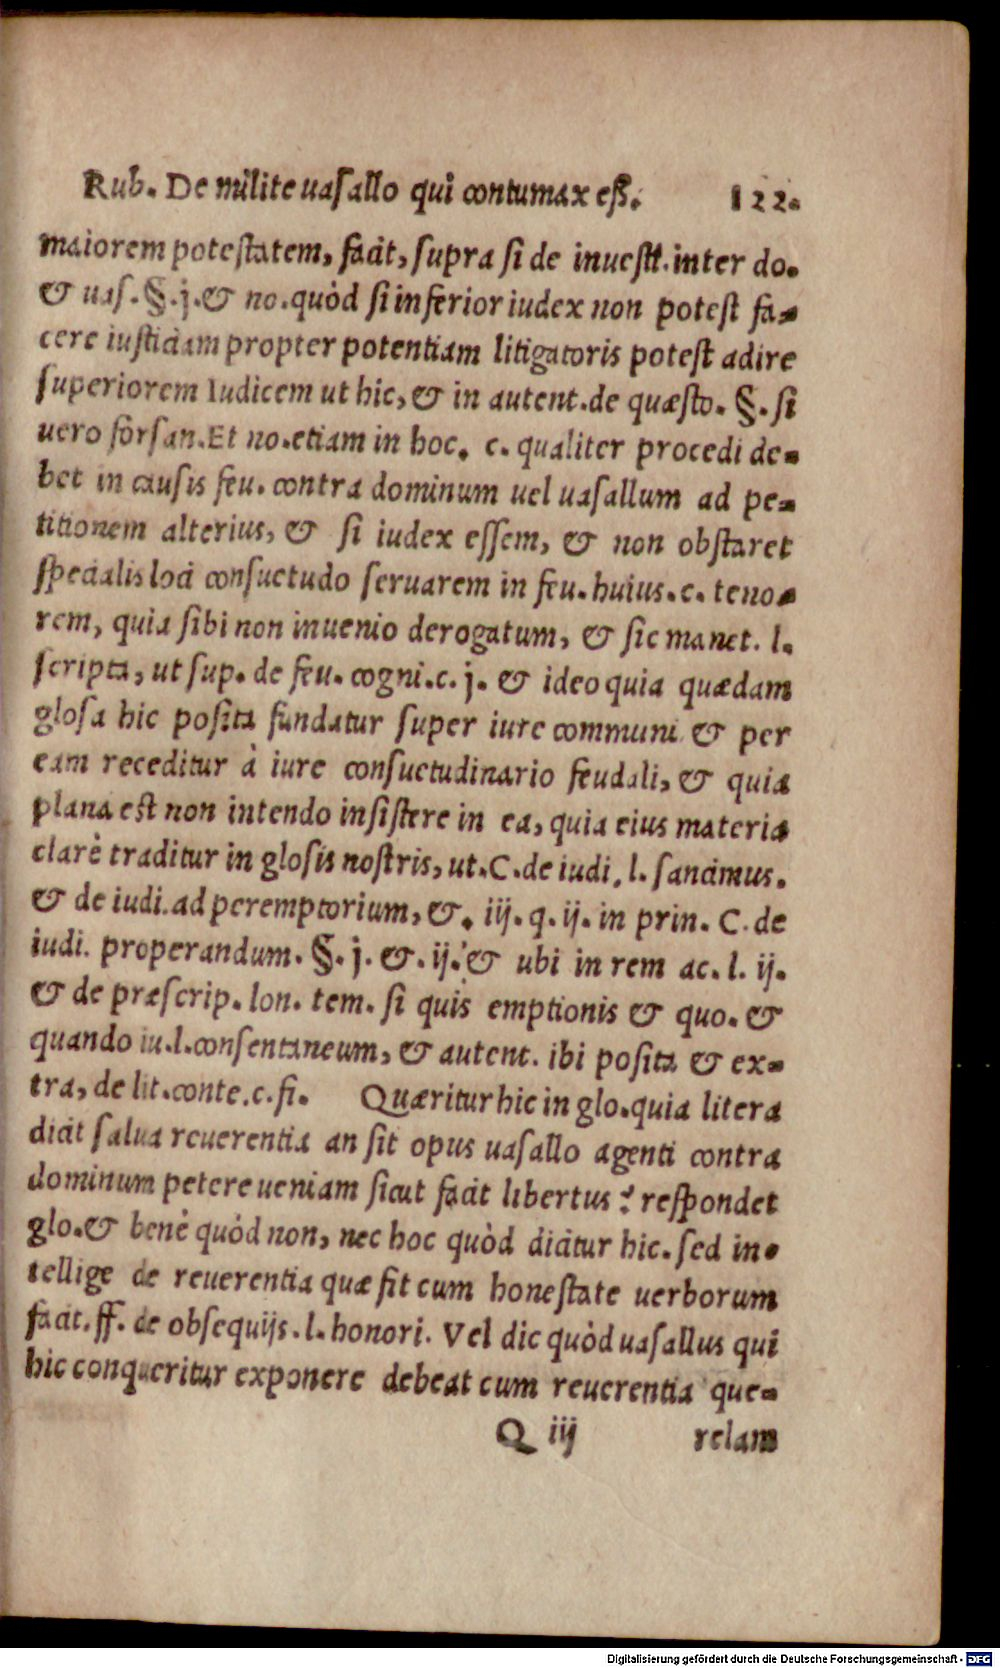 Rub. De milite uasallo qui contumax est. 122.
maiorem potestatem, facit, supra si de inuestt. inter do.
& uas. §. j. & no. quòd si inferior iudex non potest fa-
cere iusticiam propter potentiam litigatoris potest adire
superiorem Iudicem ut hic, & in autent. de quæsto. §. si
uero forsan. Et no. etiam in hoc. c. qualiter procedi de-
bet in causis feu. contra dominum uel uasallum ad pe-
titionem alterius, & si iudex essem, & non obstaret
specialis loci consuetudo seruarem in feu. huius. c. teno-
rem, quia sibi non inuenio derogatum, & sic manet. l.
scripta, ut sup. de feu. cogni. c. j. & ideo quia quædam
glosa hic posita fundatur super iure communi & per
eam receditur à iure consuetudinario feudali, & quia
plana est non intendo insistere in ea, quia eius materia
clarè traditur in glosis nostris, ut. C. de iudi. l. sancimus.
& de iudi. ad peremptorium, &. iij. q. ij. in prin. C. de
iudi. properandum. §. j. &. ij. & ubi in rem ac. l. ij.
& de præscrip. lon. tem. si quis emptionis & quo. &
quando iu. l. consentaneum, & autent. ibi posita & ex-
tra, de lit. conte. c. fi. Quæritur hic in glo. quia litera
dicit salua reuerentia an sit opus uasallo agenti contra
dominum petere ueniam sicut facit libertus? respondet
glo. & benè quòd non, nec hoc quòd dicitur hic. sed in-
tellige de reuerentia quæ fit cum honestate uerborum
facit. ff. de obsequijs. l. honori. Vel dic quòd uasallus qui
hic conqueritur exponere debeat cum reuerentia que-
Q iij relam
Digitalisierung gefördert durch die Deutsche Forschungsgemeinschaft - DFG